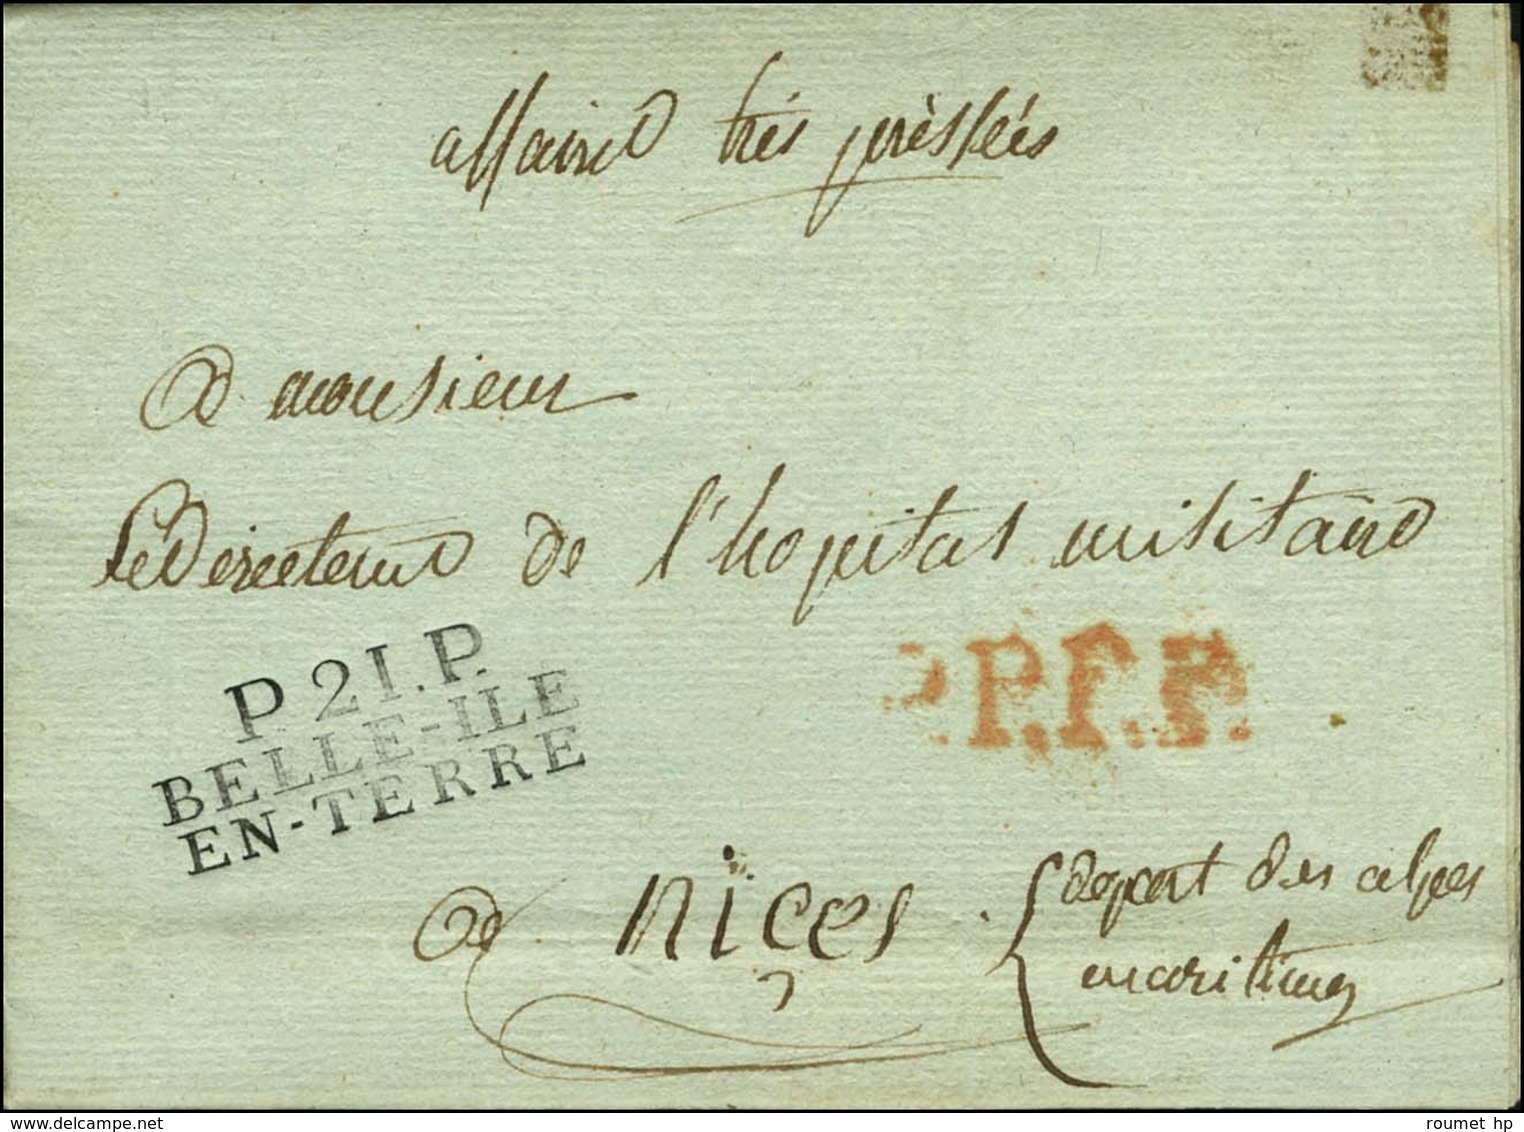 affaire très préssées
A monsieur
Le Directeur de l'hopital militaire
P.21.P.
BELLE-ILE
EN-TERRE
P.P.P.P.
A niçes
depart des alpes
maritimes
delcampe.net
roumet hp